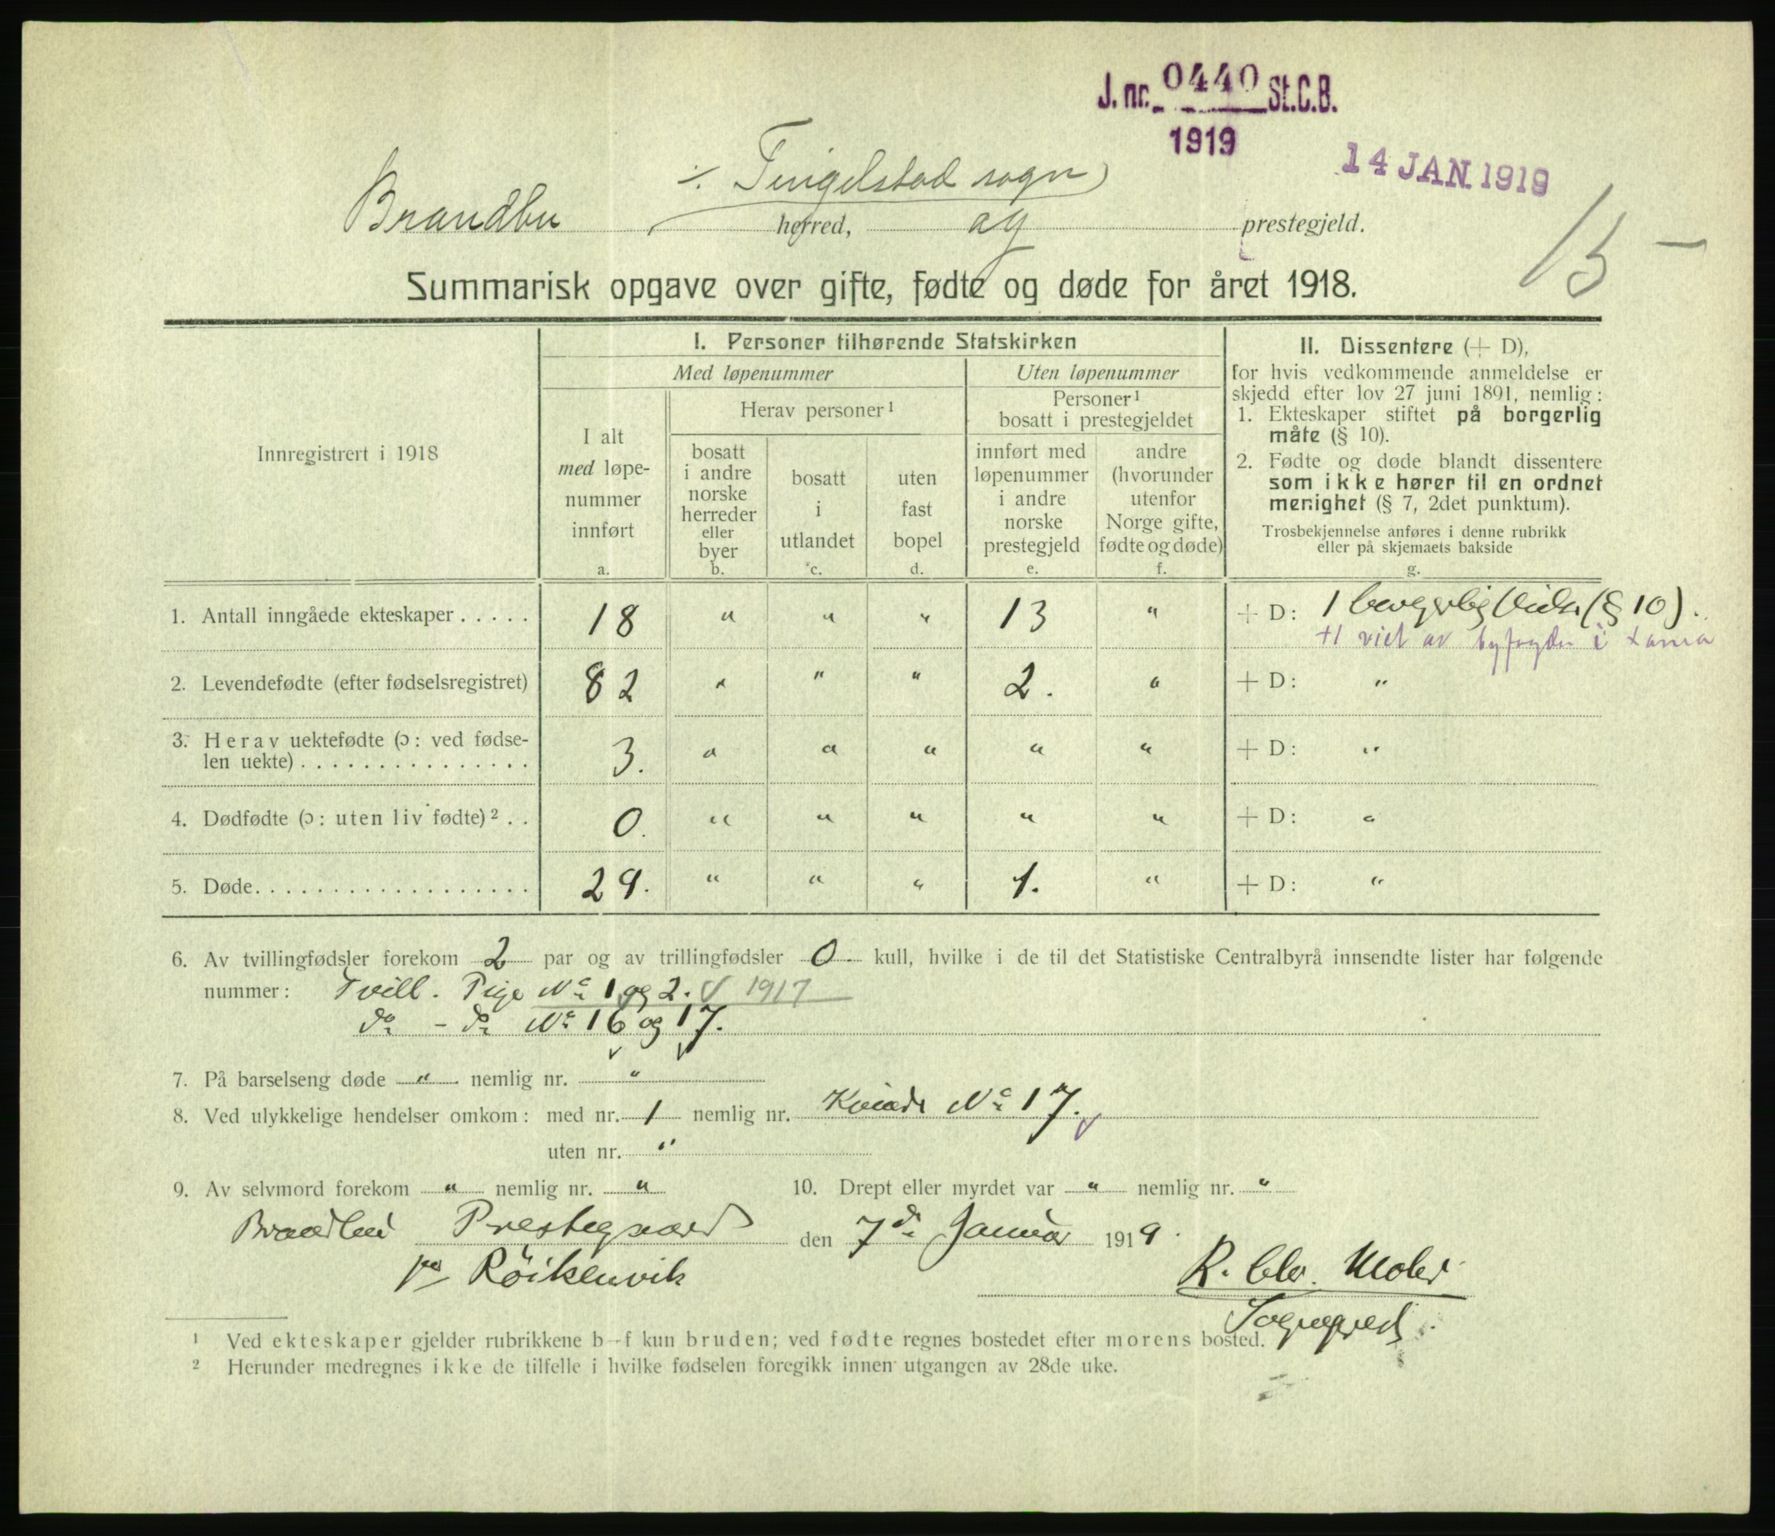 J. nr. 0440 St.C.B.
1919
14 JAN. 1919
÷ Tingelstad sogn)
Brandbu herred, og prestegjeld.
Summarisk opgave over gifte, fødte og døde for året 1918.
Innregistrert i 1918
I. Personer tilhørende Statskirken
Med løpenummer
Uten løpenummer
I alt
med løpe-
nummer
innført
a.
Herav personer ¹
bosatt
i andre
norske
herreder
eller
byer
b.
bosatt
i
utlandet
c.
uten
fast
bopel
d.
Personer ¹
bosatt i prestegjeldet
innført med
løpenummer
i andre
norske
prestegjeld
e.
andre
(hvorunder
utenfor
Norge gifte,
fødte og døde)
f.
II. Dissentere (+ D),
for hvis vedkommende anmeldelse er
skjedd efter lov 27 juni 1891, nemlig:
1. Ekteskaper stiftet på borgerlig
måte (§ 10).
2. Fødte og døde blandt dissentere
som ikke hører til en ordnet
menighet (§ 7, 2det punktum).
Trosbekjennelse anføres i denne rubrikk
eller på skjemaets bakside
g.
1. Antall inngåede ekteskaper . . . . . 18 " " " 13 " + D: 1 borgerlig (§ 10).
+1 viet av byfogden i
2. Levendefødte (efter fødselsregistret) 82 " " " 2. " + D: "
3. Herav uektefødte (ɔ: ved fødse-
len uekte) . . . . . . . . . . . . . . . 3. " " " " " + D: "
4. Dødfødte (ɔ: uten liv fødte) ² . . 0. " " " " " + D: "
5. Døde. . . . . . . . . . . . . . . . . . 29. " " " 1. " + D: "
6. Av tvillingfødsler forekom 2 par og av trillingfødsler 0. kull, hvilke i de til det Statistiske Centralbyrå innsendte lister har følgende
nummer: Tvill. Pige No 1 og 2. 1917
do - do No 16 og 17.
7. På barselseng døde " nemlig nr. "
8. Ved ulykkelige hendelser omkom: med nr. 1 nemlig nr. Kvinde No 17.
uten nr. "
9. Av selvmord forekom " nemlig nr. "
10. Drept eller myrdet var " nemlig nr. "
Brandbu Prestegaard den 7de Januar 1919.
pr Røikenvik
R. Chr. Moler
Sogneprest.
¹ Ved ekteskaper gjelder rubrikkene b–f kun bruden; ved fødte regnes bostedet efter morens bosted.
² Herunder medregnes ikke de tilfelle i hvilke fødselen foregikk innen utgangen av 28de uke.